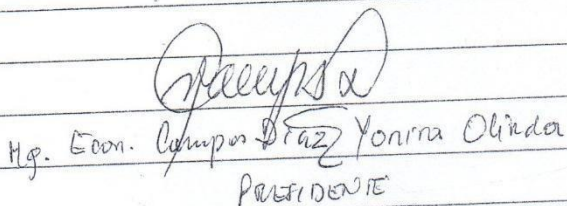 Mg. Econ. Campos Díaz Yonina Olinda
PRESIDENTE